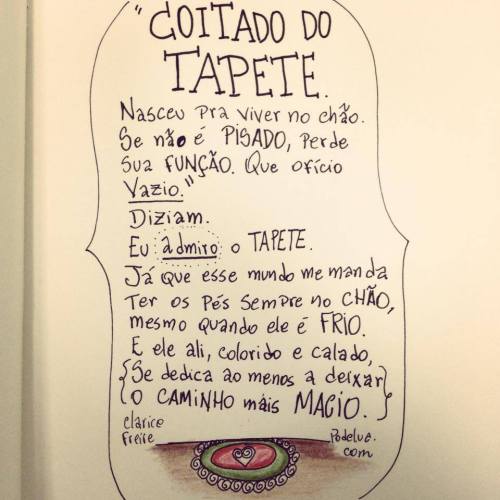 "COITADO DO
TAPETE.
Nasceu pra viver no chão.
Se não é PISADO, perde
sua FUNÇÃO. Que ofício
Vazio."
Diziam.
Eu admiro o TAPETE.
Já que esse mundo me manda
Ter os pés sempre no CHÃO,
mesmo quando ele é FRIO.
E ele ali, colorido e calado,
{Se dedica ao menos a deixar}
{O CAMINHO mais MACIO.}
Clarice
Freire
Podelua.
com